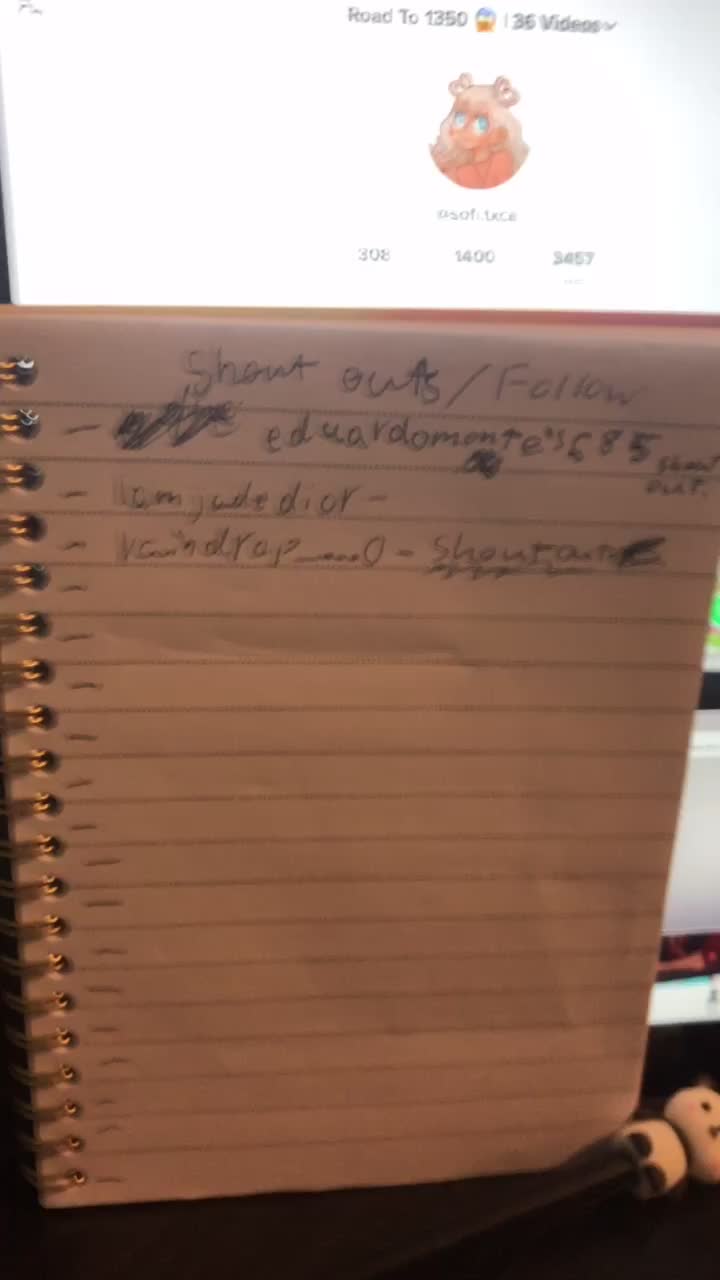 Road To 1350 😱 | 36 Videos
308 1400 3457
Shout outs / Follow
- eduardomonte's685 shout out.
- iamjadedior -
- raindrop___0 - Shoutout